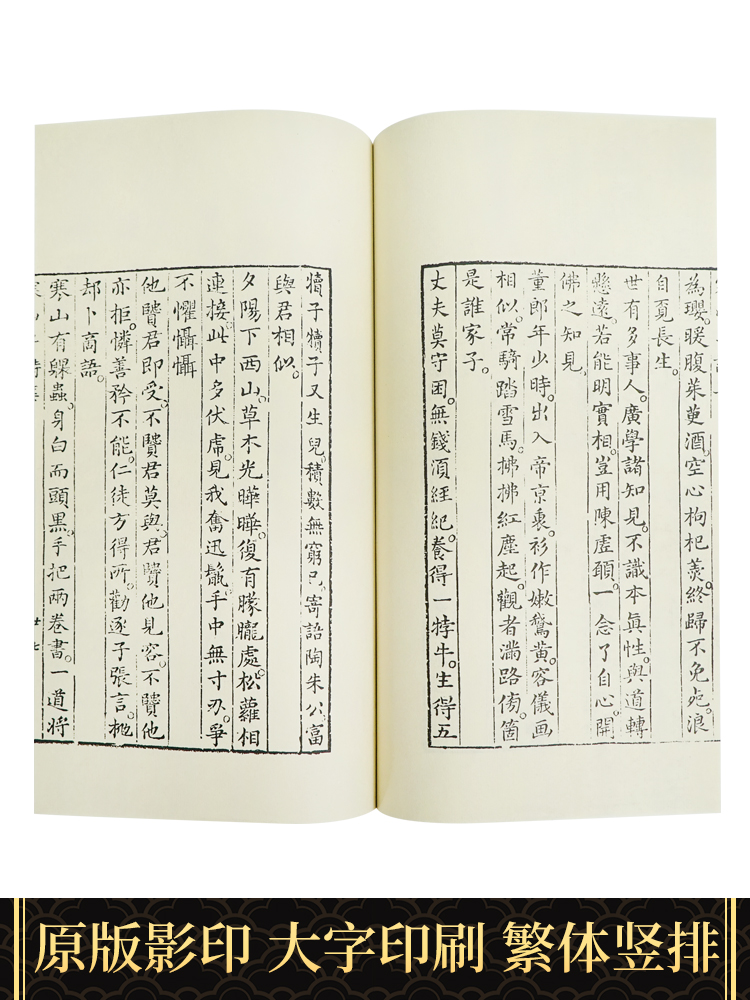 為瓔。暖腹茱萸酒。空心枸杞羹。終歸不免死。浪
自覓長生。
世有多事人。廣學諸知見。不識本眞性。與道轉
懸遠。若能明實相。豈用陳虛願。一念了自心。開
佛之知見。
董郎年少時。出入帝京裏。衫作嫩鵞黄。容儀畫
相似。常騎踏雪馬。拂拂紅塵起。觀者滿路傍。箇
是誰家子。
丈夫莫守困。無錢須經紀。養得一牸牛。生得五
犢子。犢子又生兒。積數無窮已。寄語陶朱公。富
與君相似。
夕陽下西山。草木光曄曄。復有朦朧處。松蘿相
連接。此中多伏虎。見我奮迅鬣。手中無寸刃。爭
不懼懾懾
他賢君即受。不賢君莫與。君賢他見容。不賢他
亦拒。憐善矜不能。仁徒方得所。勸逐子張言。抛
却卜商語。
寒山有躶蟲。身白而頭黑。手把兩卷書。一道將
廿七
原版影印 大字印刷 繁体竖排